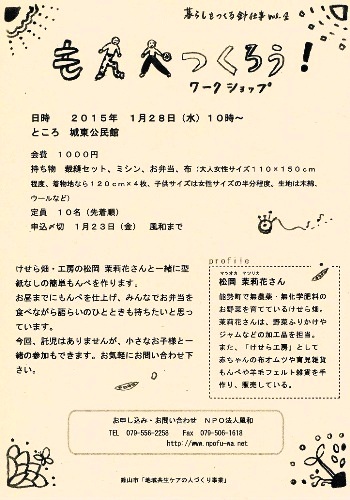 暮らしをつくる針仕事 vol.2
もんぺつくろう！
ワークショップ
日時　２０１５年　１月２８日（水）１０時～
ところ　城東公民館
会費　１０００円
持ち物　裁縫セット、ミシン、お弁当、布（大人女性サイズ１１０×１５０ｃｍ
程度、着物地なら１２０ｃｍ×４枚、子供サイズは女性サイズの半分程度、生地は木綿、
ウールなど）
定員　１０名（先着順）
申込〆切　１月２３日（金）　風和まで
けせら畑・工房の松岡 茉莉花さんと一緒に型
紙なしの簡単もんぺを作ります。
お昼までにもんぺを仕上げ、みんなでお弁当を
食べながら語らいのひとときも持ちたいと思っ
ています。
今回、託児はありませんが、小さなお子様と一
緒の参加もできます。お気軽にお問い合わせ下
さい。
profile
マツオカ　マツリカ
松岡 茉莉花さん
能勢町で無農薬・無化学肥料の
お野菜を育てているけせら畑。
茉莉花さんは、野菜ふりかけや
ジャムなどの加工品を担当。
また、「けせら工房」として
赤ちゃんの布オムツや育児雑貨
もんぺや羊毛フェルト雑貨を手
作り、販売している。
お申し込み・お問い合わせ　ＮＰＯ法人風和
TEL　079-556-2258　Fax　079-506-1618
http://www.npofu-wa.net
篠山市「地域共生ケアの人づくり事業」